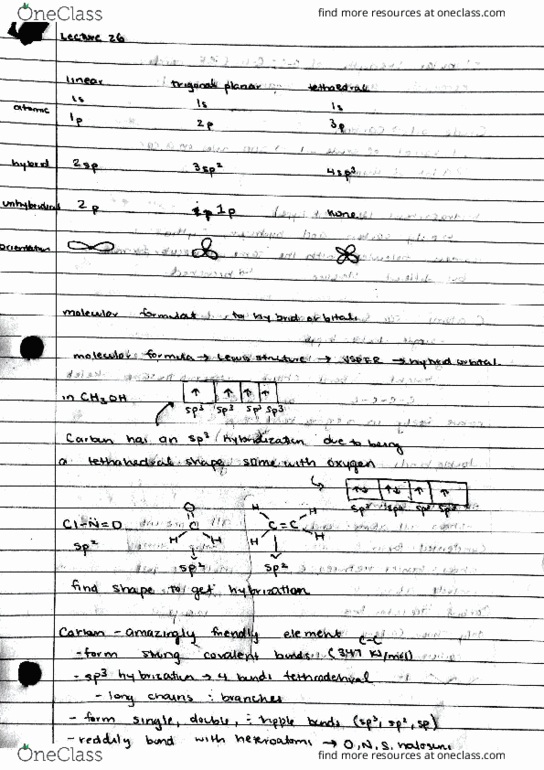 OneClass
find more resources at oneclass.com
Lecture 26
linear trigonal planar tethaedral
atomic 1s 1s 1s
1p 2p 3p
hybrid 2sp 3sp² 4sp³
unhybridized 2p 1p none
orientation
molecular formula to hybrid orbitals
molecular formula → Lewis structure → VSEPR → hybrid orbital
in CH₃OH ↑ ↑ ↑ ↑
sp³ sp³ sp³ sp³
Carbon has an sp³ hybridization due to being
a tethahedral shape same with oxygen
↑↓ ↑↓ ↑ ↑
sp³ sp³ sp³ sp³
Cl-N̈=O O H H
C C=C
sp² H H H H
sp² sp²
find shape to get hybrization
Carbon - amazingly friendly element
- form strong covalent bonds C-C (347 KJ/mol)
- sp³ hybrization → 4 bonds tethradehral
- long chains : branches
- form single, double, : tripple bonds (sp³, sp², sp)
- reddily bond with heteroatoms → O, N, S, halogens
OneClass
find more resources at oneclass.com